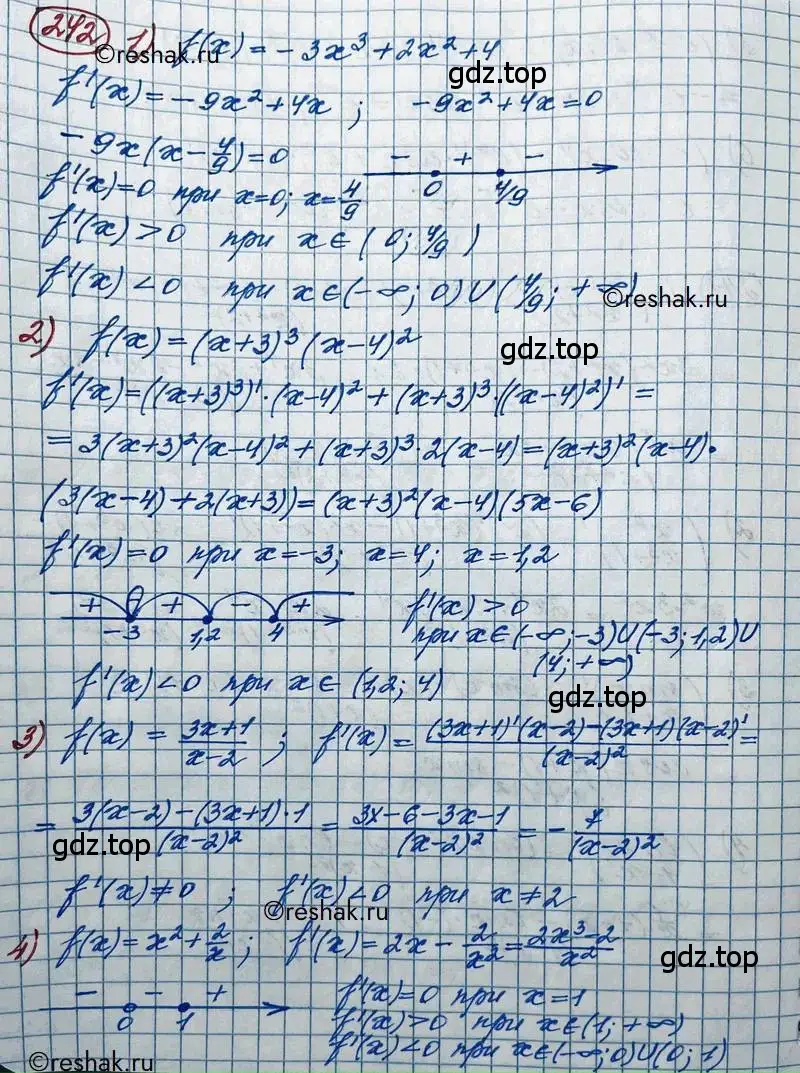 242 1) f(x) = -3x³ + 2x² + 4
gdz.top
f'(x) = -9x² + 4x ; -9x² + 4x = 0
-9x(x - 4/9) = 0
- + -
0 4/9
f'(x) = 0 при x=0; x=4/9
f'(x) > 0 при x ∈ (0; 4/9)
f'(x) < 0 при x ∈ (-∞; 0) ∪ (4/9; +∞)
©reshak.ru
2) f(x) = (x+3)³ (x-4)²
gdz.top
f'(x) = ((x+3)³)' · (x-4)² + (x+3)³ · ((x-4)²)' =
= 3(x+3)² (x-4)² + (x+3)³ · 2(x-4) = (x+3)² (x-4) ·
(3(x-4) + 2(x+3)) = (x+3)² (x-4)(5x-6)
f'(x) = 0 при x=-3; x=4; x=1,2
+ + - +
-3 1,2 4
f'(x) > 0
при x ∈ (-∞; -3) ∪ (-3; 1,2) ∪
(4; +∞)
f'(x) < 0 при x ∈ (1,2; 4)
gdz.top
3) f(x) = (3x+1)/(x-2) ; f'(x) = ((3x+1)'(x-2) - (3x+1)(x-2)')/(x-2)² =
= (3(x-2) - (3x+1)·1)/(x-2)² = (3x-6-3x-1)/(x-2)² = - 7/(x-2)²
gdz.top
f'(x) ≠ 0 ; f'(x) < 0 при x ≠ 2
©reshak.ru
4) f(x) = x² + 2/x ; f'(x) = 2x - 2/x² = (2x³-2)/x²
gdz.top
- - +
0 1
f'(x) = 0 при x = 1
f'(x) > 0 при x ∈ (1; +∞)
f'(x) < 0 при x ∈ (-∞; 0) ∪ (0; 1)
©reshak.ru